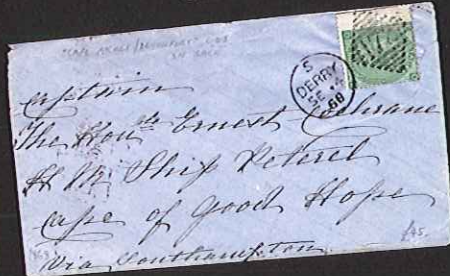 S
DERRY
SE 14
68
Captain
The Honble Ernest Cochrane
H M Ship Peterel
Cape of Good Hope
Via Southampton
£45.